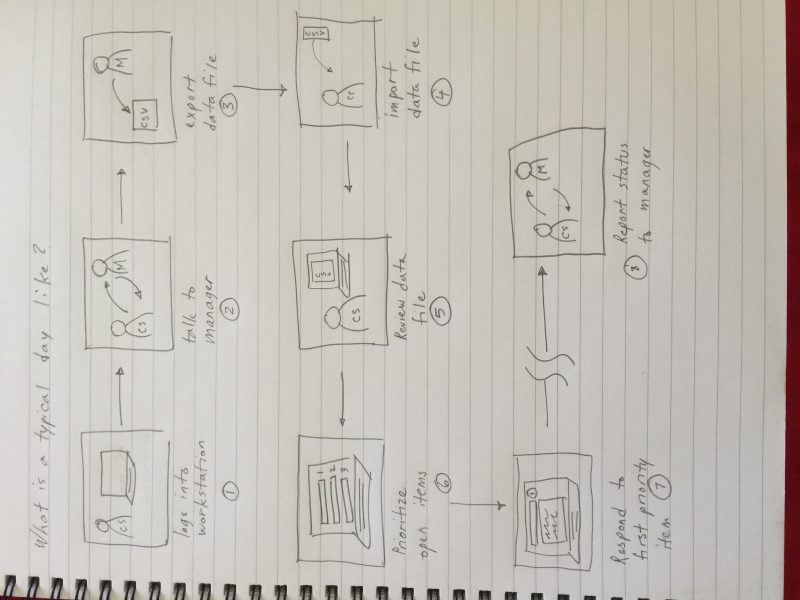 What is a typical day like?
CS
logs into
workstation
1
CS M
talk to
manager
2
M
CSV
export
data file
3
CSV
CS
import
data file
4
CSV
CS
Review data
file
5
1
2
3
Prioritize
open items
6
1
Respond to
first priority
item 7
CS M
8 Report status
to manager